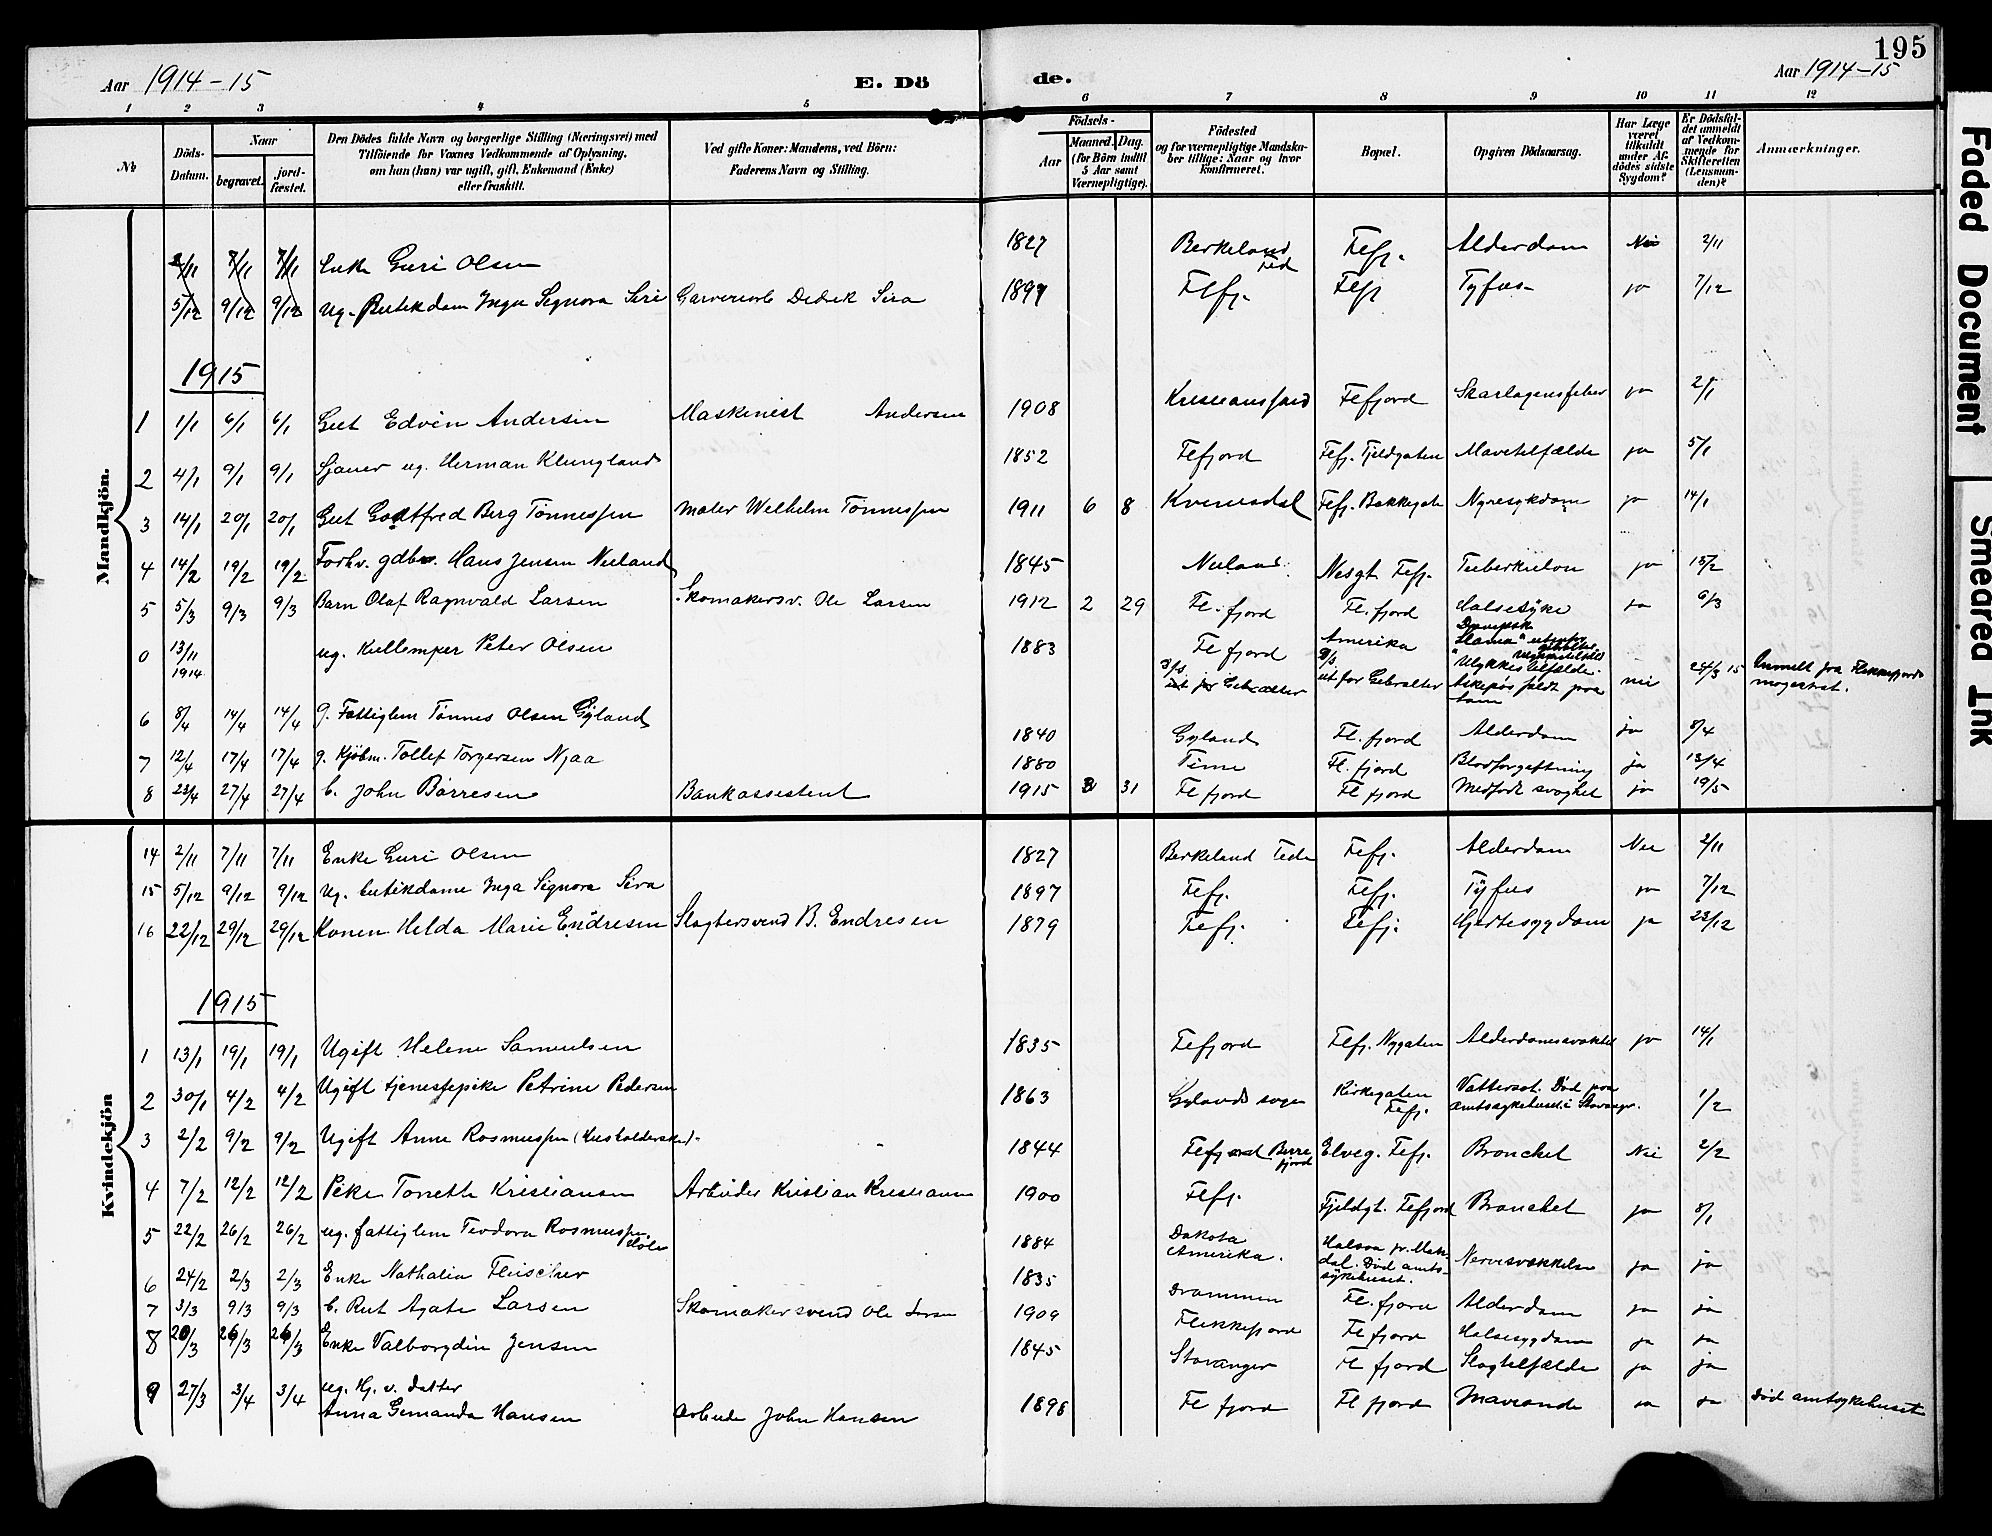 195
Aar 1914-15
E. Dö
de.
Aar 1914-15
1 2 3 4 5 6 7 8 9 10 11 12
№
Döds-Datum.
Naar
begravet.
jordfæstet.
Den Dödes fulde Navn og borgerlige Stilling (Næringsvei) med
Tilföiende for Voxnes Vedkommende af Oplysning,
om hun (han) var ugift, gift, Enkemand (Enke)
eller fraskilt.
Ved gifte Koner: Mandens, ved Börn:
Faderens Navn og Stilling.
Födsels-
Aar
Maaned. Dag.
(for Börn indtil
5 Aar samt
Værnepligtige).
Födested
og for værnepligtige Mandskaber tillige: Naar og hvor
konfirmeret.
Bopæl.
Opgiven Dödsaarsag.
Har Læge
været
tilkaldt
under Afdödes sidste
Sygdom?
Er Dödsfaldet anmeldt
af Vedkommende for
Skifteretten
(Lensmanden)?
Anmærkninger.
Mandkjön.
2/11 7/11 7/11 Enke Guri Olsen 1827 Berkeland Fed Flfj. Alderdom Nei 2/11
5/12 9/12 9/12 ug. Butikdam Inga Signora Siri Garverarb Didrik Sira 1897 Flfj. Flfj Tyfus ja 7/12
1915
1 1/1 6/1 6/1 Gut Edvin Andersen Maskinist Andersen 1908 Kristianssand Flfjord Skarlagensfeber ja 2/1
2 4/1 9/1 9/1 Sjauer ug. Herman Klungland 1852 Flfjord Flfj. Fjeldgaten Mavetilfælde ja 5/1
3 14/1 20/1 20/1 Gut Godtfred Berg Tønnessen Maler Wilhelm Tønnessen 1911 6 8 Kvinesdal Flfj. Bakkegate Nyresykdom ja 14/1
4 14/2 19/2 19/2 Forhv. gdbr. Hans Jensen Nuland 1845 Nuland Nesgt Flfj. Tuberkulon ja 15/2
5 5/3 9/3 9/3 Barn Olaf Ragnvald Larsen Skomakersv. Ole Larsen 1912 2 29 Fl. fjord Fl. fjord Halsesyke ja 6/3
0 13/11 1914 ug. Kullemper Peter Olsen 1883 Fl fjord Amerika
D/s ut for Gibralter Ulykkestilfælde. Askepøs faldt paa ham nei 24/3 15 Anmelt fra Flekkefjords magistrat.
6 8/4 14/4 14/4 g. Fattiglem Tønnes Olsen Gyland 1840 Gyland Fl. fjord Alderdom ja 8/4
7 12/4 17/4 17/4 g. Kjøbm. Tollef Torgersen Njaa 1880 Time Fl. fjord Blodforgiftning ja 13/4
8 23/4 27/4 27/4 b. John Børresen Bankassistent 1915 3 31 Fl fjord Fl fjord Medfødt svaghet ja 19/5
Kvindekjön
14 2/11 7/11 7/11 Enke Guri Olsen 1827 Berkeland Fede Flfj. Alderdom Nei 2/11
15 5/12 9/12 9/12 Ug. butikdame Inga Signora Sira 1897 Flfj. Flfj. Tyfus ja 7/12
16 22/12 29/12 29/12 Konen Helda Marie Endresen Slagtersvend B. Endresen 1879 Flfj. Flfj. Hjertesygdom ja 23/12
1915
1 13/1 19/1 19/1 Ugift Helene Samuelsen 1835 Flfjord Flfj. Nygaten Alderdomssvakhet ja 14/1
2 30/1 4/2 4/2 Ugift tjenestepike Petrine Pedersen 1863 Gylands sogn Kirkegaten Flfj. Vattersot. Død paa amtssykehuset i Stavanger. 1/2
3 2/2 9/2 9/2 Ugift Anne Rasmussen (Husholderske) - 1844 Flfjord Flfj. Elveg. Flfj. Bronchet Nei 2/2
4 7/2 12/2 12/2 Pike Tonette Kristiansen Arbeider Kristian Kristiansen 1900 Flfj. Fjeldgt. Flfjord Bronchet ja 8/1
5 22/2 26/2 26/2 ug. fattiglem Teodora Rasmussen 1884 Dakota Amerika. Halsaa pr. Mandal. Død amtssykehuset. Nervesvækkelse ja ja
6 24/2 2/3 2/3 Enke Nathalia Fleischer 1835 Drammen Fl. fjord Alderdom ja ja
7 3/3 9/3 9/3 b. Rut Agate Larsen Skomakersvend Ole Larsen 1909 Flekkefjord Fl fjord Halsesygdom ja ja
8 20/3 26/3 26/3 Enke Valborgdin Jensen 1845 Stavanger Fl fjord Slagtilfælde ja ja
9 27/3 3/4 3/4 ug. Hj. v. datter
Anna Gemanda Hansen Arbeide John Hansen 1898 Fl fjord Fl fjord Maveonde ja ja Død amtssykehuset
Faded Document
Smeared Ink